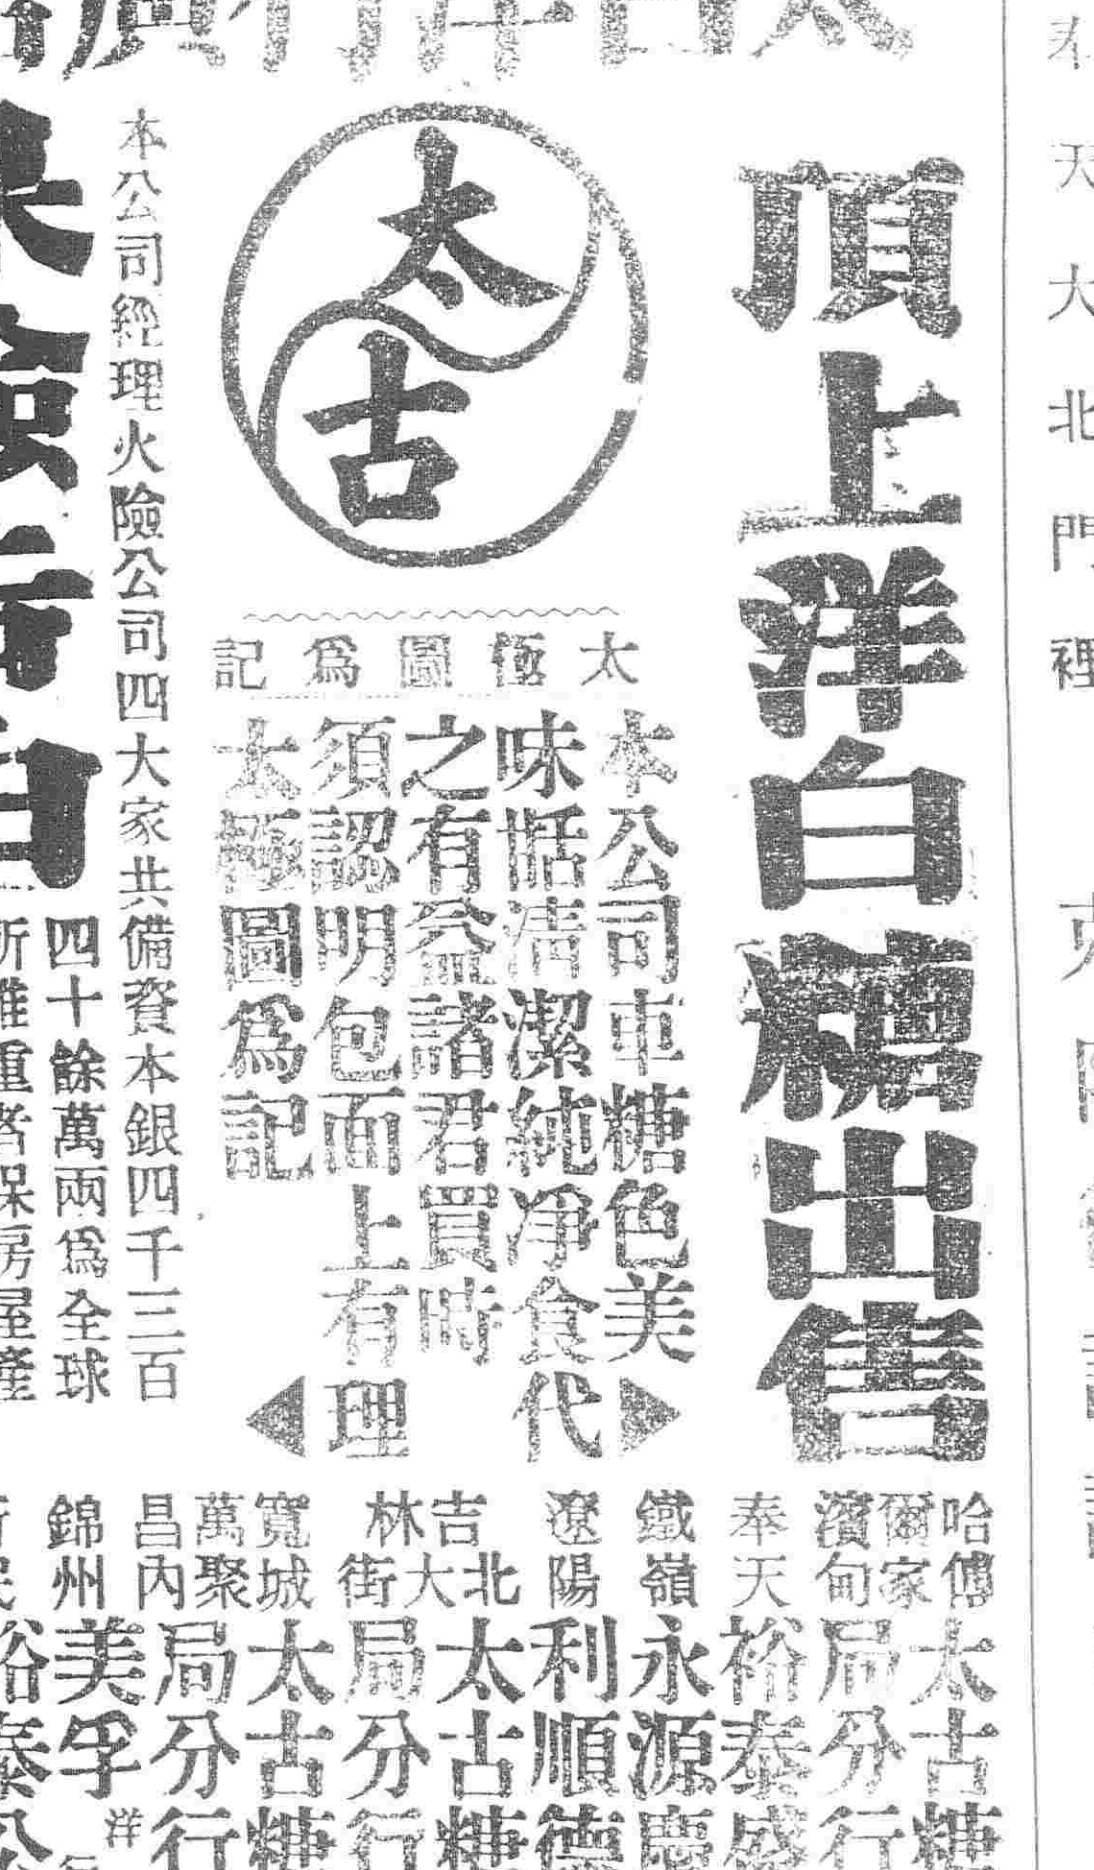 奉天大北門裡
太古洋行廣
頂上洋白糖出售
太古
太極圖爲記
本公司車糖色美
味恬清潔純凈食
之有益諸君買時
須認明包面上有
太極圖爲記
代理
哈爾濱傅家甸太古糖局分行
奉天裕泰盛
鐵嶺永源慶
遼陽利順德
吉林北大街太古糖局分行
寬城萬聚昌內太古糖局分行
錦州美孚洋
本公司經理火險公司四大家共備資本銀四千三百
四十餘萬兩爲全球
所推重者保房屋產